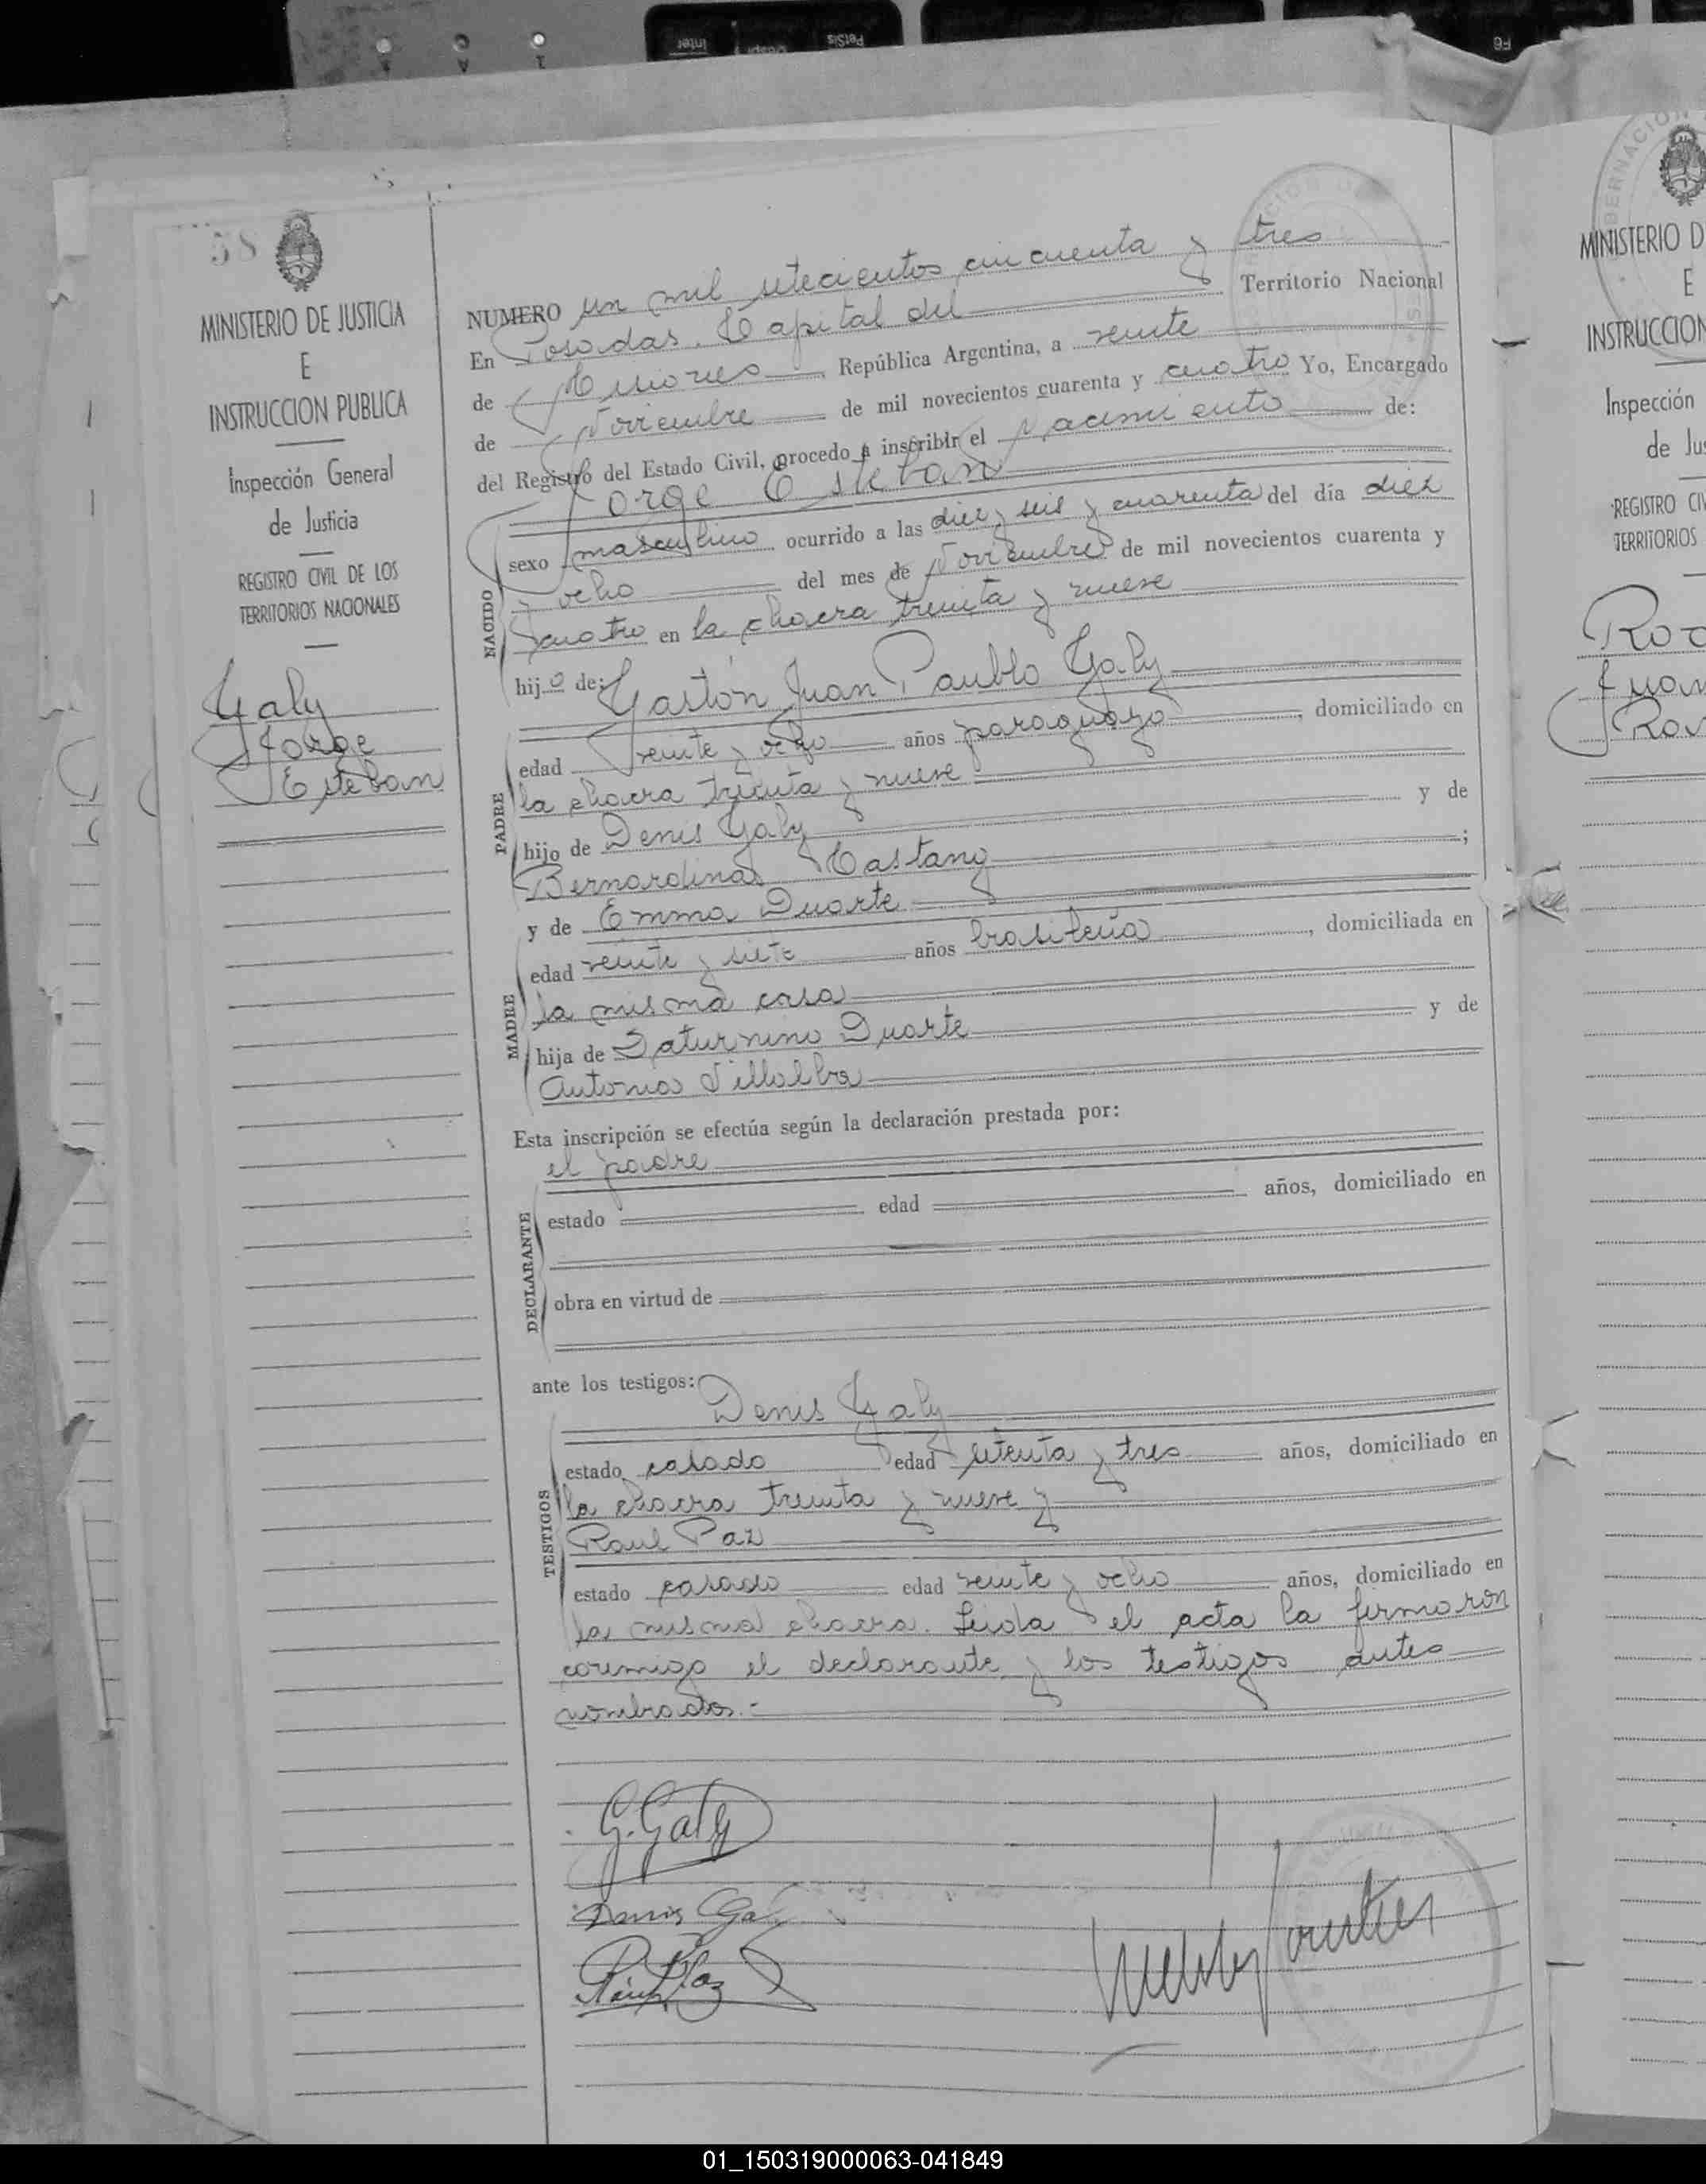 58
MINISTERIO DE JUSTICIA
E
INSTRUCCION PUBLICA
Inspección General
de Justicia
REGISTRO CIVIL DE LOS
TERRITORIOS NACIONALES
Galy
Jorge
Esteban
NUMERO un mil setecientos cincuenta y tres
En Posadas. Capital del Territorio Nacional
de Misiones República Argentina, a veinte
de Noviembre de mil novecientos cuarenta y cuatro Yo, Encargado
del Registro del Estado Civil, procedo a inscribir el Nacimiento de:
Jorge Esteban
NACIDO
sexo masculino ocurrido a las diez y seis y cuarenta del día diez
y ocho del mes de Noviembre de mil novecientos cuarenta y
cuatro en la chacra treinta y nueve
hijo de: Gastón Juan Paublo Galy
PADRE
edad veinte y ocho años paraguayo, domiciliado en
la chacra treinta y nueve
hijo de Denis Galy y de
Bernardina Castang;
y de Emma Duarte
MADRE
edad veinte y siete años brasileña, domiciliada en
la misma casa
hija de Saturnino Duarte y de
Antonia Villalba
Esta inscripción se efectúa según la declaración prestada por:
el padre
DECLARANTE
estado edad años, domiciliado en
obra en virtud de
ante los testigos:
Denis Galy
TESTIGOS
estado casado edad setenta y tres años, domiciliado en
la chacra treinta y nueve y
Raul Paz
estado casado edad veinte y ocho años, domiciliado en
la misma chacra. Leida el acta la firmaron
conmigo el declarante y los testigos antes
nombrados.-
G. Galy
Denis Galy
Raúl Paz
MINISTERIO D
E
INSTRUCCION
Inspección
de Jus
REGISTRO CIV
TERRITORIOS
Juan
01_150319000063-041849